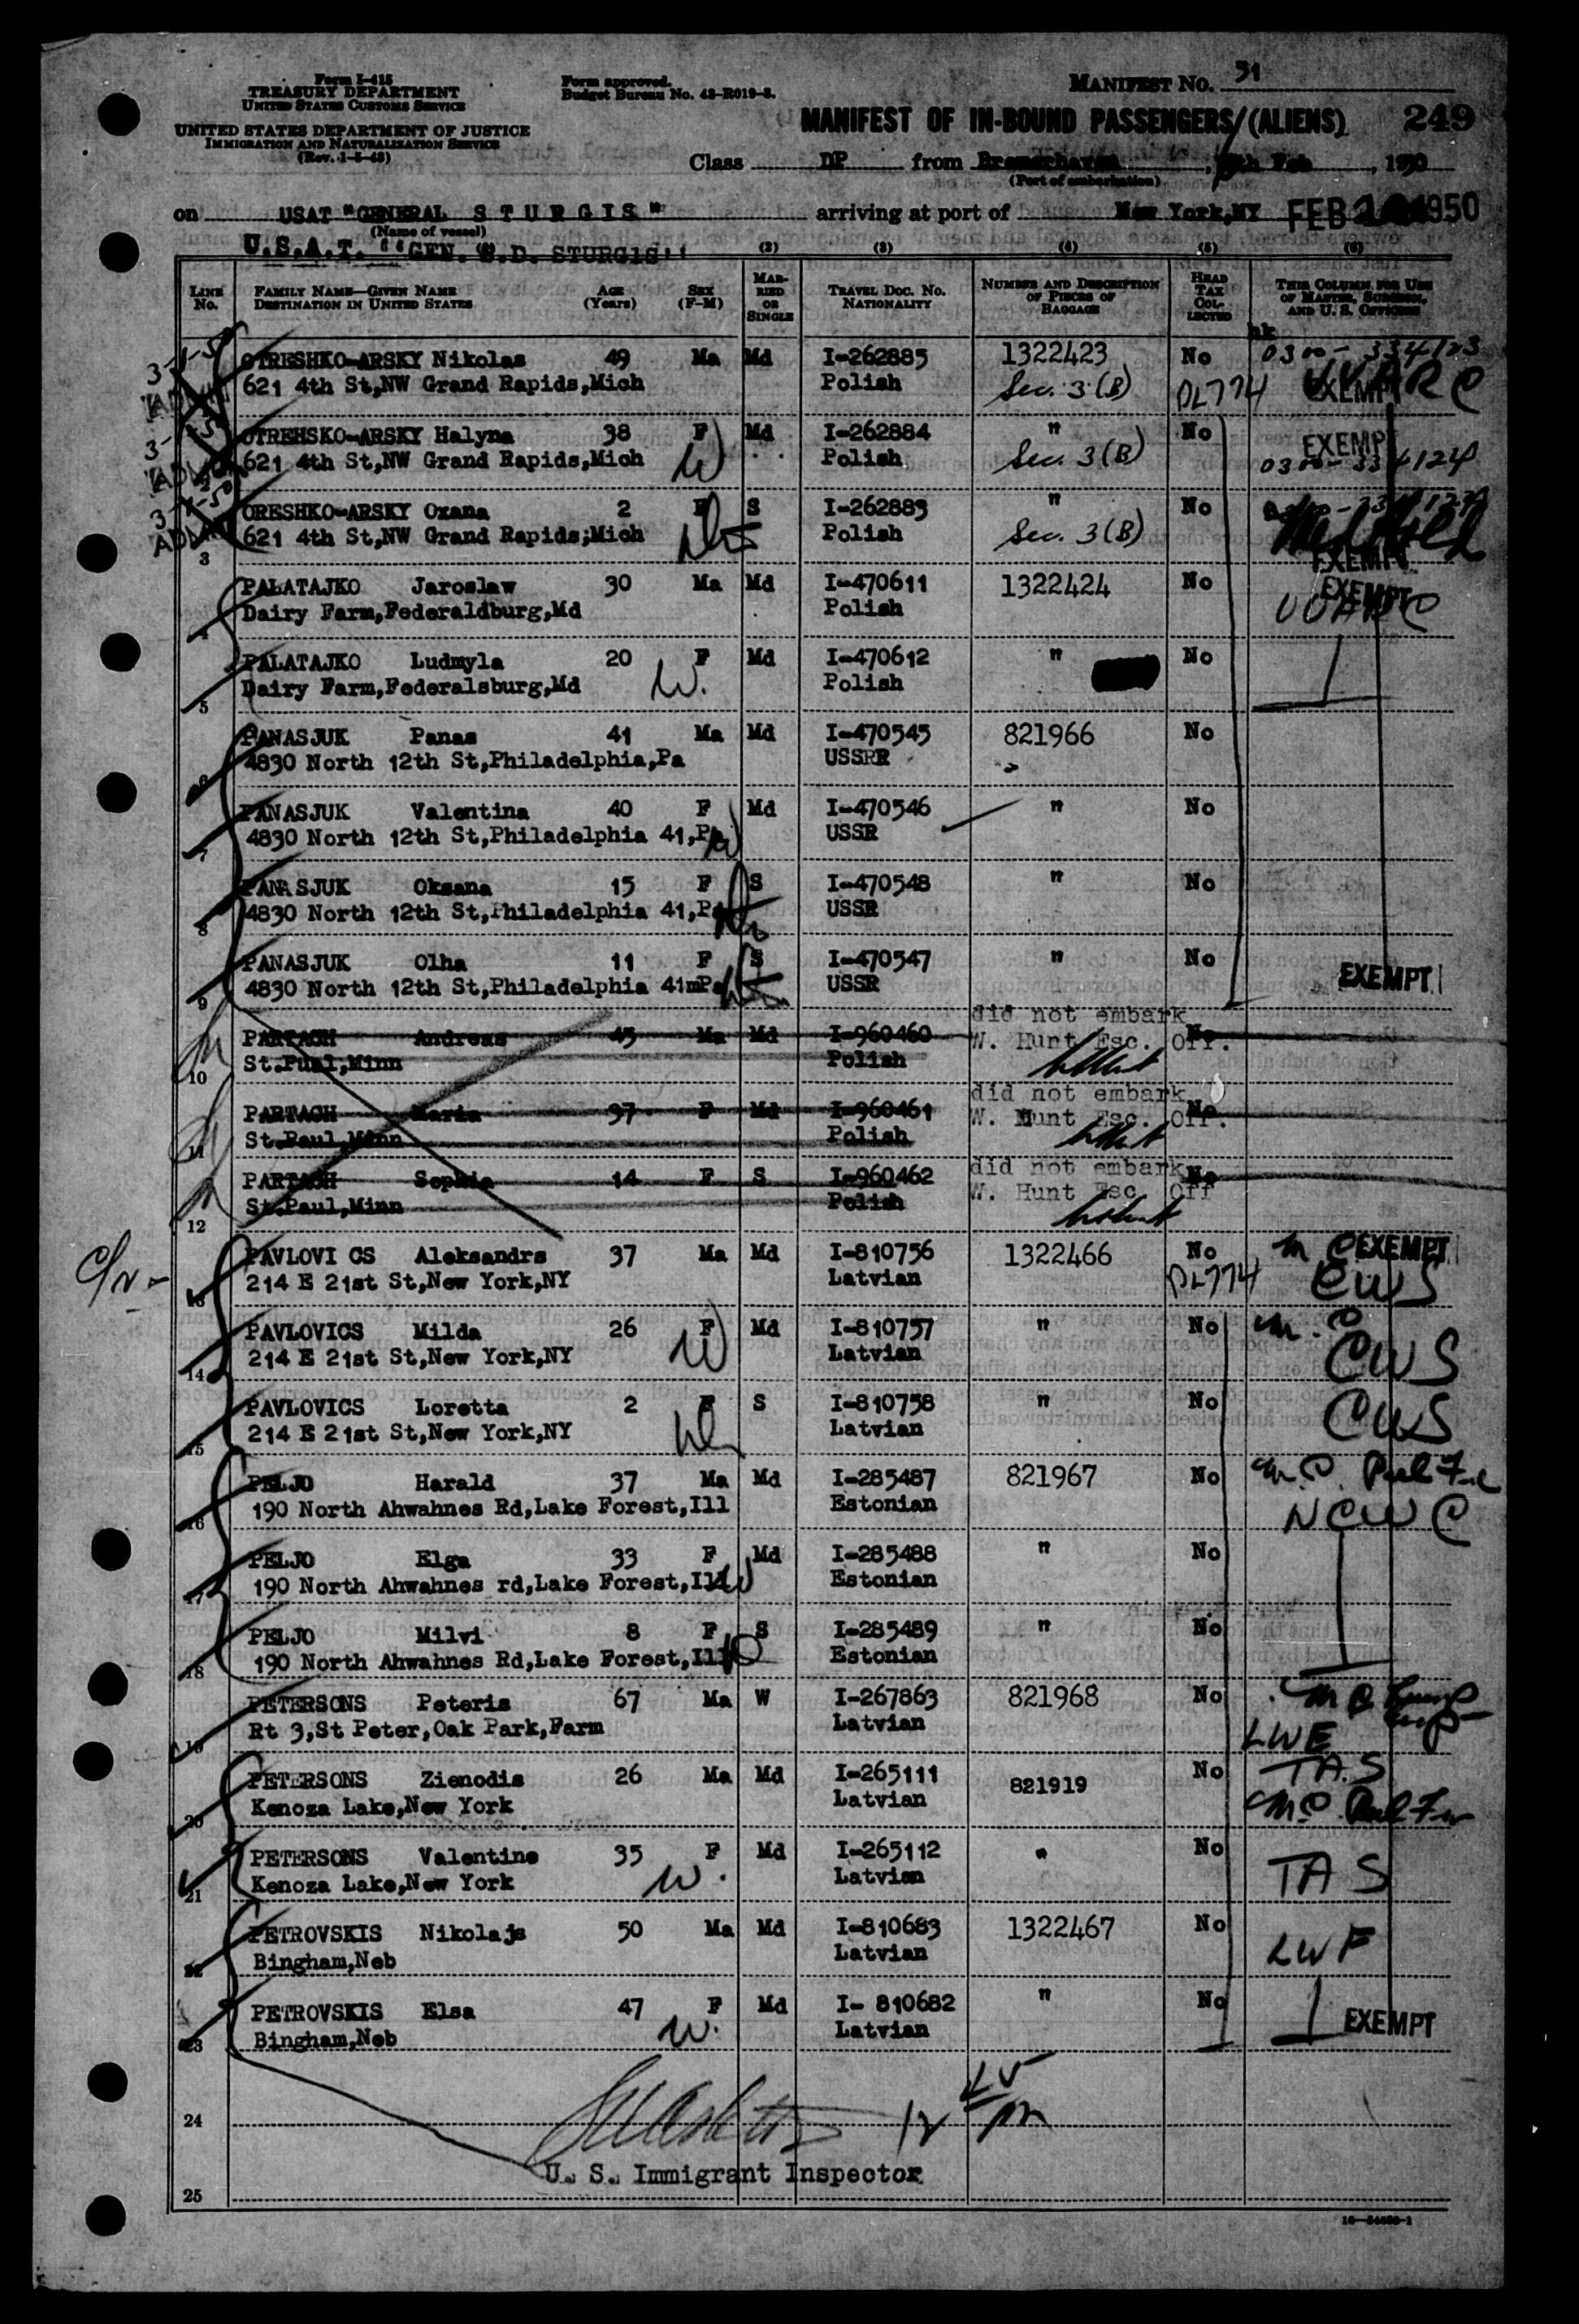 Form I-415
TREASURY DEPARTMENT
UNITED STATES CUSTOMS SERVICE
UNITED STATES DEPARTMENT OF JUSTICE
IMMIGRATION AND NATURALIZATION SERVICE
(Rev. 1-5-48)
Form approved.
Budget Bureau No. 43-R019-3.
MANIFEST NO. 31
MANIFEST OF IN-BOUND PASSENGERS (ALIENS) 249
Class DP from Bremerhaven, Feb, 1950
(Port of embarkation)
on USAT "GENERAL STURGIS" arriving at port of New York,NY FEB 1950
(Name of vessel)
U.S.A.T. "GEN. S.D. STURGIS"
(2) (3) (4) (5) (6)
LINE No. FAMILY NAME—GIVEN NAME DESTINATION IN UNITED STATES AGE (Years) SEX (F-M) MARRIED OR SINGLE TRAVEL DOC. NO. NATIONALITY NUMBER AND DESCRIPTION OF PIECES OF BAGGAGE HEAD TAX COLLECTED THIS COLUMN FOR USE OF MASTER, SURGEON, AND U. S. OFFICERS
OTRESHKO-ARSKY Nikolas 49 Ma Md I-262885 1322423 No 0300-334123
621 4th St,NW Grand Rapids,Mich Polish Sec. 3(B) PL774 EXEMPT
OTREHSKO-ARSKY Halyna 38 F Md I-262884 " No EXEMPT
621 4th St,NW Grand Rapids,Mich W Polish Sec. 3(B) 0300-334124
ORESHKO-ARSKY Oxana 2 F S I-262883 " No
3 621 4th St,NW Grand Rapids;Mich Polish Sec. 3(B) EXEMPT
PALATAJKO Jaroslaw 30 Ma Md I-470611 1322424 No EXEMPT
4 Dairy Farm,Federaldburg,Md Polish
PALATAJKO Ludmyla 20 F Md I-470612 " No
5 Dairy Farm,Federalsburg,Md W. Polish
PANASJUK Panas 41 Ma Md I-470545 821966 No
6 4830 North 12th St,Philadelphia,Pa USSRR
PANASJUK Valentina 40 F Md I-470546 " No
7 4830 North 12th St,Philadelphia 41,Pa USSR
PANASJUK Oksana 15 F S I-470548 " No
8 4830 North 12th St,Philadelphia 41,Pa USSR
PANASJUK Olha 11 F S I-470547 " No EXEMPT
9 4830 North 12th St,Philadelphia 41mPa USSR
did not embark
PARTACH Andreas 45 Ma Md I-960460 W. Hunt Esc. Off. No
10 St.Pual,Minn Polish
did not embark
PARTACH Maria 37 F Md I-960461 W. Hunt Esc. Off. No
11 St.Paul,Minn Polish
did not embark
PARTACH Sophia 14 F S I-960462 W. Hunt Esc. Off No
12 St.Paul,Minn Polish
PAVLOVI CS Aleksandrs 37 Ma Md I-810756 1322466 No EXEMPT
13 214 E 21st St,New York,NY Latvian PL774 CWS
PAVLOVICS Milda 26 F Md I-810757 " No
14 214 E 21st St,New York,NY W Latvian CWS
PAVLOVICS Loretta 2 F S I-810758 " No CWS
15 214 E 21st St,New York,NY Latvian
PELJO Harald 37 Ma Md I-285487 821967 No
16 190 North Ahwahnes Rd,Lake Forest,Ill Estonian NCWC
PELJO Elga 33 F Md I-285488 " No
17 190 North Ahwahnes rd,Lake Forest,Ill W Estonian
PELJO Milvi 8 F S I-285489 " No
18 190 North Ahwahnes Rd,Lake Forest,Ill Estonian
PETERSONS Peteris 67 Ma W I-267863 821968 No
19 Rt 3,St Peter,Oak Park,Farm Latvian LWF
PETERSONS Zienodis 26 Ma Md I-265111 821919 No TAS
20 Kenoza Lake,New York Latvian
PETERSONS Valentine 35 F Md I-265112 " No TAS
21 Kenoza Lake,New York W. Latvian
PETROVSKIS Nikolajs 50 Ma Md I-810683 1322467 No LWF
22 Bingham,Neb Latvian
PETROVSKIS Elsa 47 F Md I- 810682 " No EXEMPT
23 Bingham,Neb W. Latvian
24
U. S. Immigrant Inspector
25